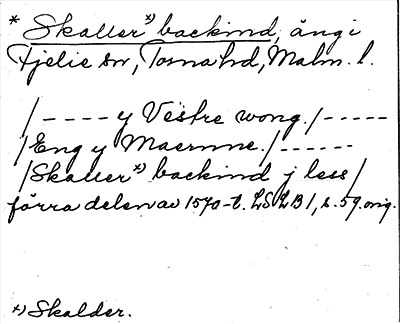 * Skaller *) backind, äng i
Fjelie sn, Torna hd, Malm. l.
/ - - - - y Vestre wong. / - - - - -
/ Eng y Maernne. / - - - - - -
/ Skaller *) backind j less /
förra delen av 1570-t. LSLB 1, s. 59. orig.
*) Skalder.